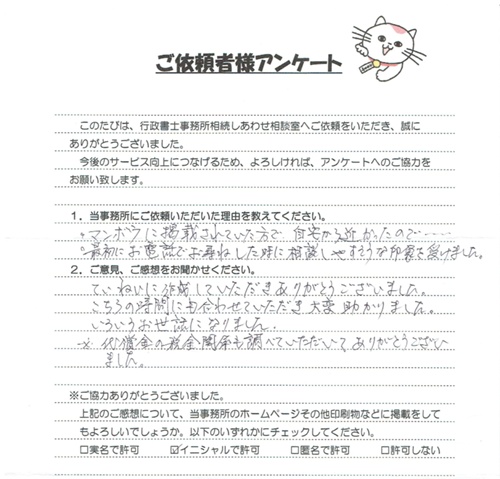 ご依頼者様アンケート
このたびは、行政書士事務所相続しあわせ相談室へご依頼をいただき、誠に
ありがとうございました。
今後のサービス向上につなげるため、よろしければ、アンケートへのご協力を
お願い致します。
1.当事務所にご依頼いただいた理由を教えてください。
。マンボウに掲載されていた方で自宅から近かったので……
。最初にお電話でお尋ねした時に相談しやすそうな印象を受けました。
2.ご意見、ご感想をお聞かせください。
ていねいに作成していただきありがとうございました。
こちらの時間にも合わせていただき大変助かりました。
いろいろお世話になりました。
※代償金の税金関係も調べていただいてありがとうござい
ました。
※ご協力ありがとうございました。
上記のご感想について、当事務所のホームページその他印刷物などに掲載をして
もよろしいでしょうか。以下のいずれかにチェックしてください。
□実名で許可 ☑イニシャルで許可 □匿名で許可 □許可しない